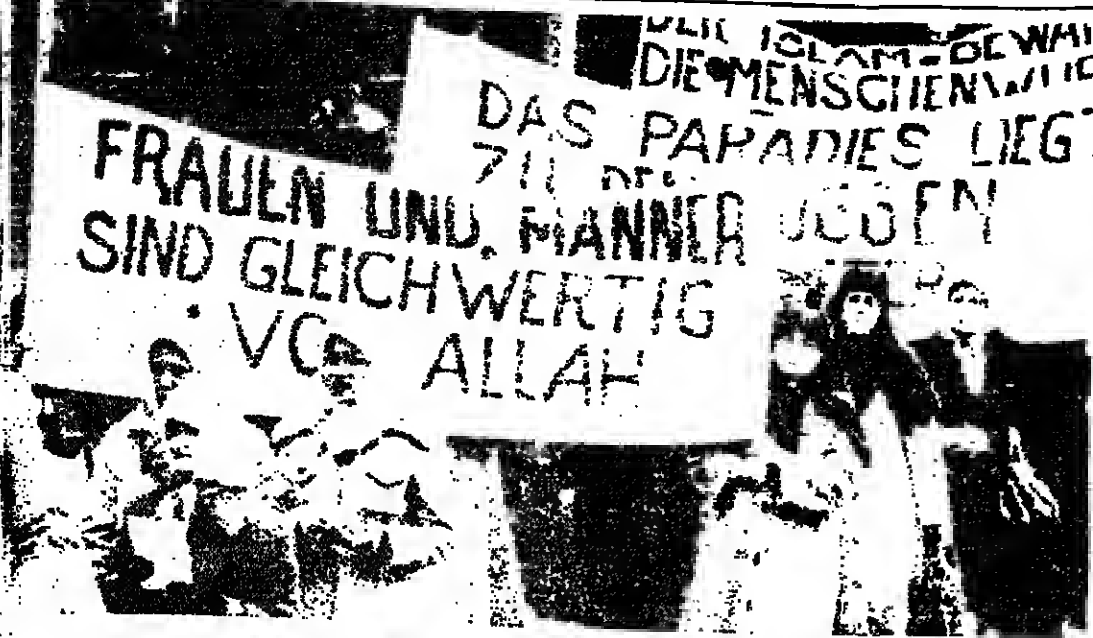 DER ISLAM BEWAH
DIE MENSCHENWÜ
DAS PARADIES LIEGT
ZU DEN
FRAUEN UND MÄNNER
SIND GLEICHWERTIG
VO ALLAH